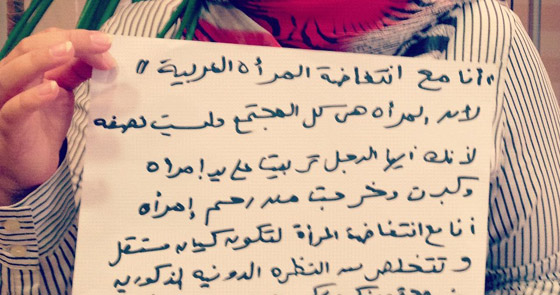 "أنا مع انتفاضة المرأة العربية"
لأن المرأه هى كل المجتمع وليست نصفه
لأنك أيها الرجل تربيت على يد إمرأه
وكبرت وخرجت من رحم إمرأه
أنا مع انتفاضة المرأة لتكون كيان مستقل
وتتخلص من النظره الدونيه الذكوريه